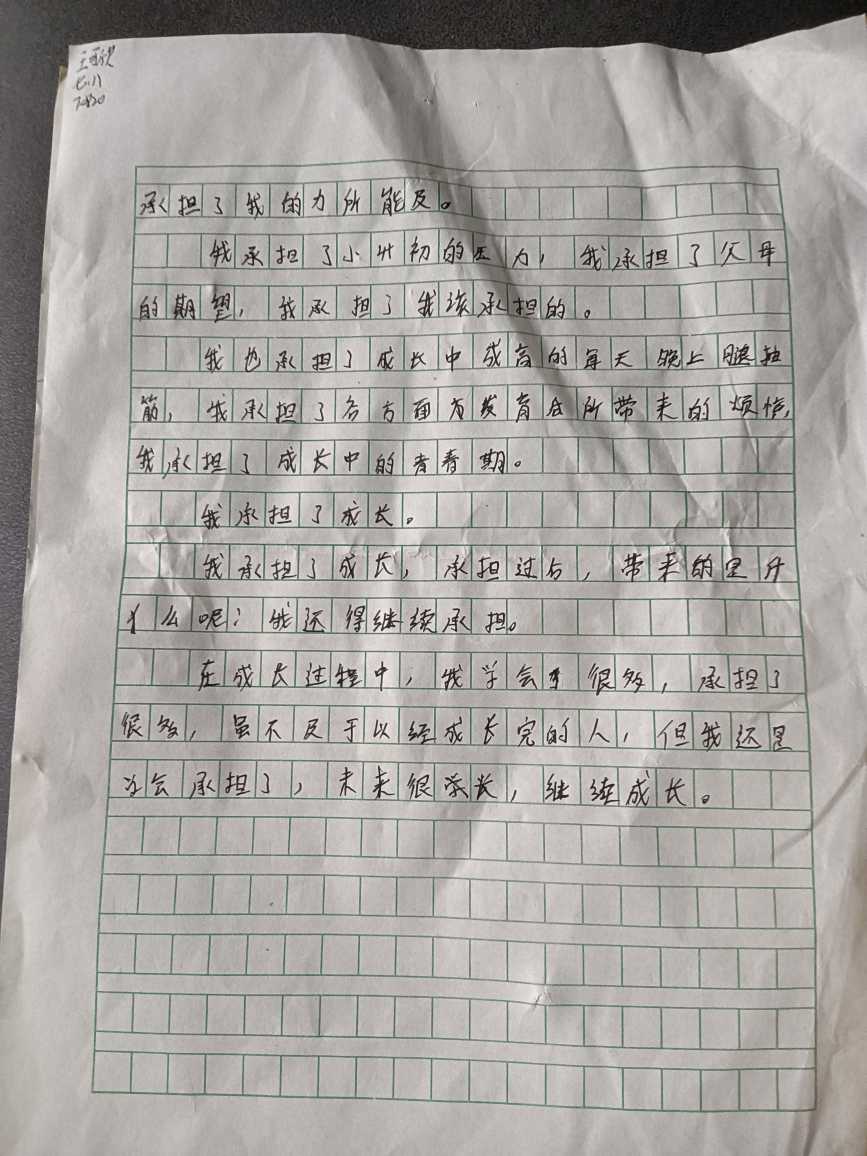 七.11
承担了我的力所能及。
我承担了小升初的压力，我承担了父母
的期望，我承担了我该承担的。
我也承担了成长中成高的每天晚上腿抽
筋，我承担了各方面为发育会所带来的烦恼，
我承担了成长中的青春期。
我承担了成长。
我承担了成长，承担过后，带来的是
什么呢？我还得继续承担。
在成长过程中，我学会了很多，承担了
很多，虽不及于以经成长完的人，但我还是
学会承担了，未来很漫长，继续成长。